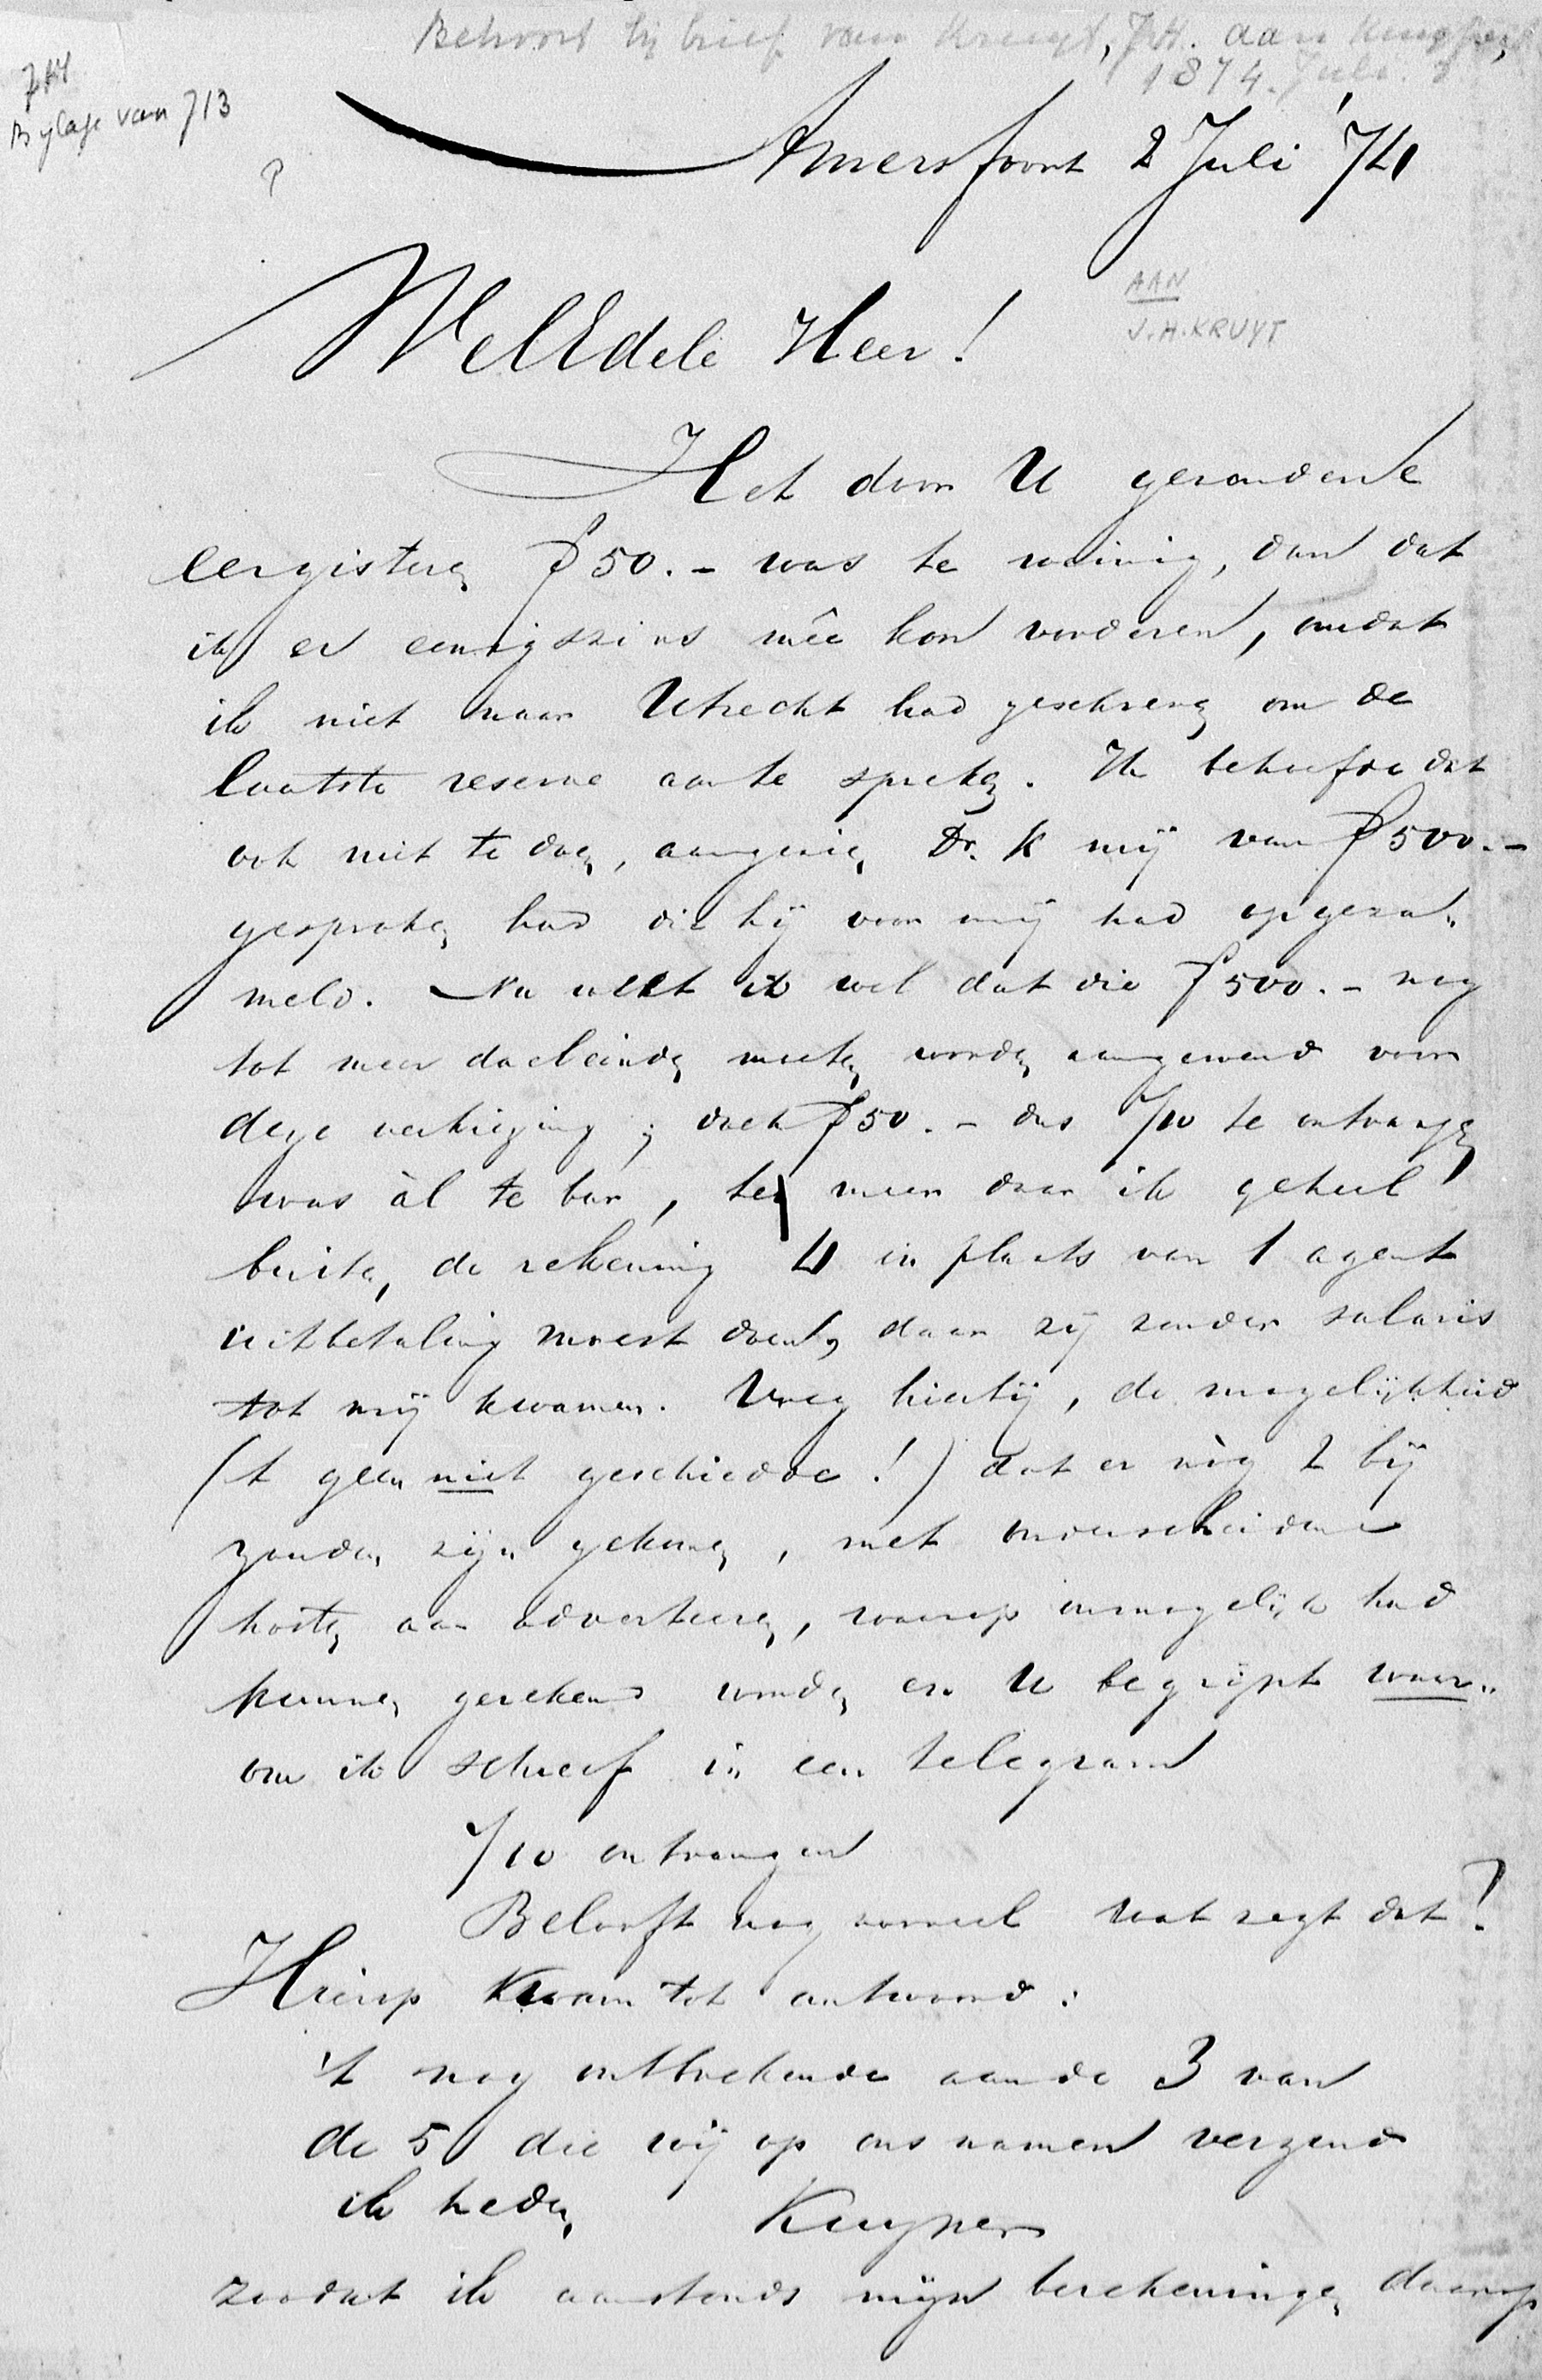 Behoort bij brief van Kruyt, J.H. aan Kuyper,
1874. Juli. 2
714
Bijlage van 713
?
Amersfoort 2 Juli '74
WelEdele Heer!
AAN
J.H. KRUYT
Het door U gezondene
eergisteren ƒ 50.- was te weinig, dan dat
ik er eenigszins mêe kon vorderen, omdat
ik niet naar Utrecht had geschreven om de
laatste reserve aan te spreken. Ik behoefde dat
ook niet te doen, aangezien Dr. K mij van ƒ 500.-
gesproken had die hij voor mij had opgeza-
meld. Nu weet ik wel dat die ƒ 500.- nog
tot meer doeleinden moeten worden aangewend voor
deze verkiezing; doch ƒ 50.- dus 1/10 te ontvangen
was àl te bar, te meer daar ik geheel
buiten de rekening 4 in plaats van 1 agent
uitbetaling moest doen, daar zij zonder salaris
tot mij kwamen. Voeg hierbij, de mogelijkheid
('t geen niet geschiedde!) dat er nòg 2 bij
zouden zijn gekomen, met onderscheidene
kosten aan adverteeren, waarop onmogelijk had
kunnen gerekend worden en U begrijpt waar-
om ik schreef in een telegram
1/10 ontvangen
Belooft nog zooveel wat zegt dat?
Hierop kwam tot antwoord:
't nog ontbrekende aan de 3 van
de 5 die wij op ons namen verzend
ik heden Kuyper
zoodat ik aanstonds mijn berekeningen daarop